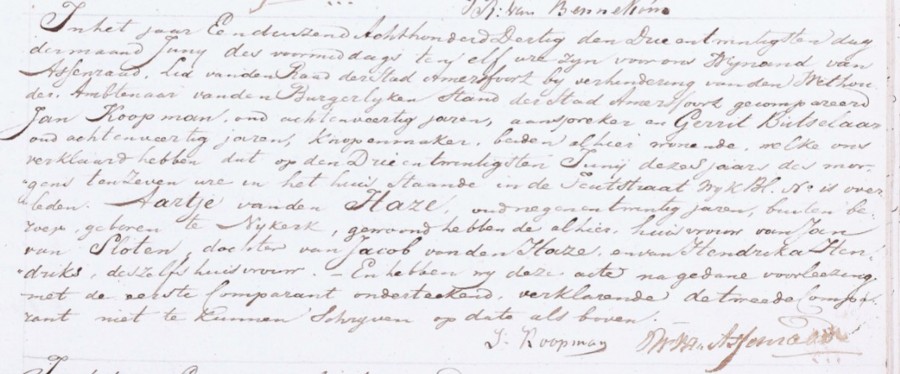 J. R. van Bennekom
In het jaar Een duizend Achthonderd Dertig den Drie en twintigsten dag
der maand Juny des voormiddags ten elf ure zyn voor ons Wynand van
Assenraad, Lid van den Raad der stad Amersfoort by verhindering van den Wethou
der, Ambtenaar van den Burgerlyken Stand der Stad Amersfoort gecompareerd
Jan Koopman, oud achtenveertig jaren, aanspreker en Gerrit Butselaar
oud achtenveertig jaren, Knopenmaker, beiden alhier wonende, welke ons
verklaard hebben dat op den Drie en twintigsten Junij dezes jaars des mor-
gens ten zeven ure in het huis staande in de Teutstraat Wyk Bl. No is over
leden. Aartje van den Haze, oud negenentwintig jaren, buiten be-
roep, geboren te Nykerk, gewoond hebbende alhier, huisvrouw van Jan
van Sloten, dochter van Jacob van den Haze, en van Hendrika Hen-
driks, deszelfs huisvrouw. — En hebben wy deze acte na gedane voorlezing
met de eerste Comparant onderteekend, verklarende de tweede Compa-
rant niet te kunnen Schryven op date als boven.
J. Koopman